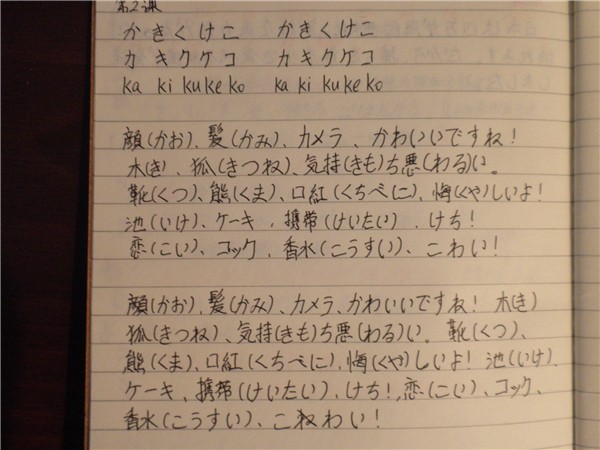 第2课
かきくけこ かきくけこ
カキクケコ カキクケコ
ka ki ku ke ko ka ki ku ke ko
顔(かお)、髪(かみ)、カメラ、かわいいですね!
木(き)、狐(きつね)、気持(きも)ち悪(わる)い。
靴(くつ)、熊(くま)、口紅(くちべに)、悔(くや)しいよ!
池(いけ)、ケーキ、携帯(けいたい)、けち!
恋(こい)、コック、香水(こうすい)、こわい!
顔(かお)、髪(かみ)、カメラ、かわいいですね! 木(き)
狐(きつね)、気持(きも)ち悪(わる)い。靴(くつ)、
熊(くま)、口紅(くちべに)、悔(くや)しいよ! 池(いけ)、
ケーキ、携帯(けいたい)、けち!,恋(こい)、コック、
香水(こうすい)、こわい!